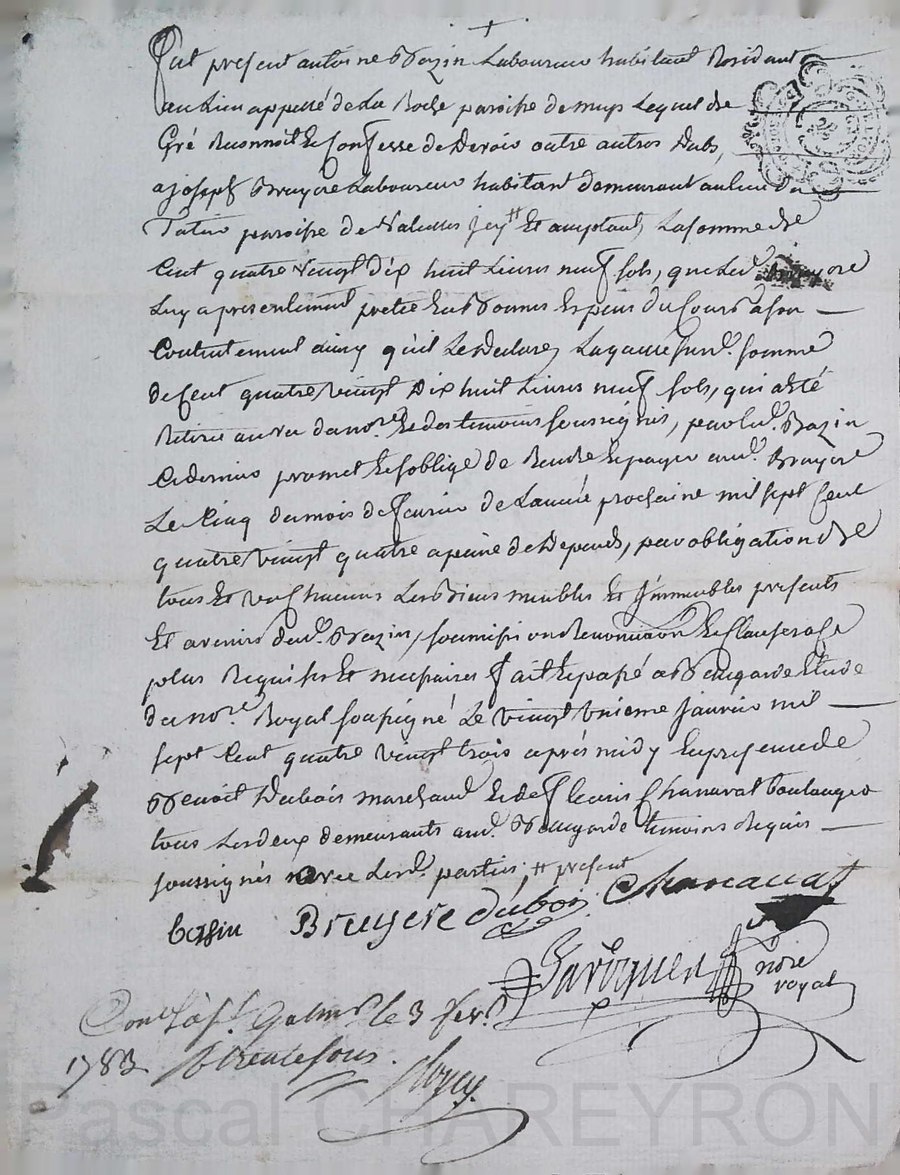 fut present antoine Bazin Laboureur habitant Residant
au Lieu appellé de La Roche paroisse de Lequel de
Gré Reconnoit & Confesse de Devoir outre autres Debs,
a joseph Bruyere Laboureur habitant demeurant au lieu du
paroisse de jcy # Et acceptant, La somme de
Cent quatre vingt dix huit Livres neuf sols, que Led. Bruyere
Luy a presentement pretée En Bonnes Especes du Cours a son
Contentement ainsy qu'il Le declare, Laquelle susd. somme
de Cent quatre vingt Dix huit Livres neuf sols, qui a Eté
Retirée au vu du nore. & des temoins soussignés, par led. Bazin
Ce dernier promet & s'oblige de Rendre & payer aud. Bruyere
Le Cinq du mois de fevrier de L'année prochaine mil sept Cent
quatre vingt quatre a peine de Depends, par obligation de
tous Et un Chacuns Les Biens meubles Et jmmeubles presents
Et avenirs dud. Bazin, soumission Renonciation & Clauses a ce
plus Requises Et necessaires fait & passé a Etude
du nore. Royal soussigné Le vingt unieme janvier mil
sept Cent quatre vingt trois après midy En presence de
Benoit Dubois marchand & de fleuris Chanavat boulanger
tous Les deux demeurants aud. temoins Requis
soussignés avec Lesd. parties, # present
bassin Bruyere dubois Chanavat
nore
royal
Con.lé à St. Galmier le 3 fevr.
1783. R trente sous.
Pascal CHAREYRON